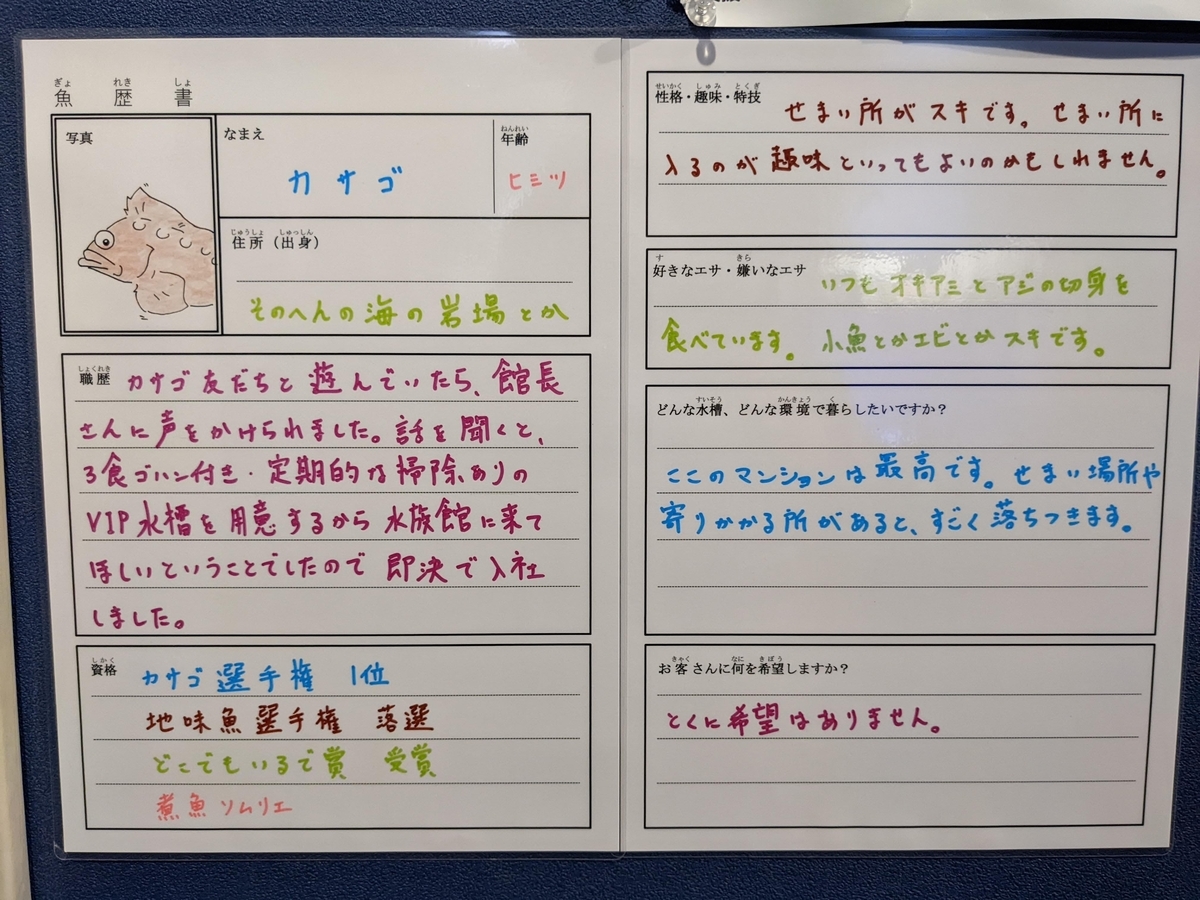 魚歴書
ぎょ れき しょ
写真
なまえ
カサゴ
年齢
ねんれい
ヒミツ
住所（出身）
じゅうしょ しゅっしん
そのへんの海の岩場とか
職歴
しょくれき
カサゴ友だちと遊んでいたら、館長
さんに声をかけられました。話を聞くと、
3食ゴハン付き・定期的な掃除ありの
VIP水槽を用意するから水族館に来て
ほしいということでしたので即決で入社
しました。
資格
しかく
カサゴ選手権 1位
地味魚選手権 落選
どこでもいるで賞 受賞
煮魚ソムリエ
性格・趣味・特技
せいかく しゅみ とくぎ
せまい所がスキです。せまい所に
入るのが趣味といってもよいのかもしれません。
好きなエサ・嫌いなエサ
す きら
いつもオキアミとアジの切身を
食べています。小魚とかエビとかスキです。
どんな水槽、どんな環境で暮らしたいですか？
すいそう かんきょう く
ここのマンションは最高です。せまい場所や
寄りかかる所があると、すごく落ちつきます。
お客さんに何を希望しますか？
きゃく なに きぼう
とくに希望はありません。